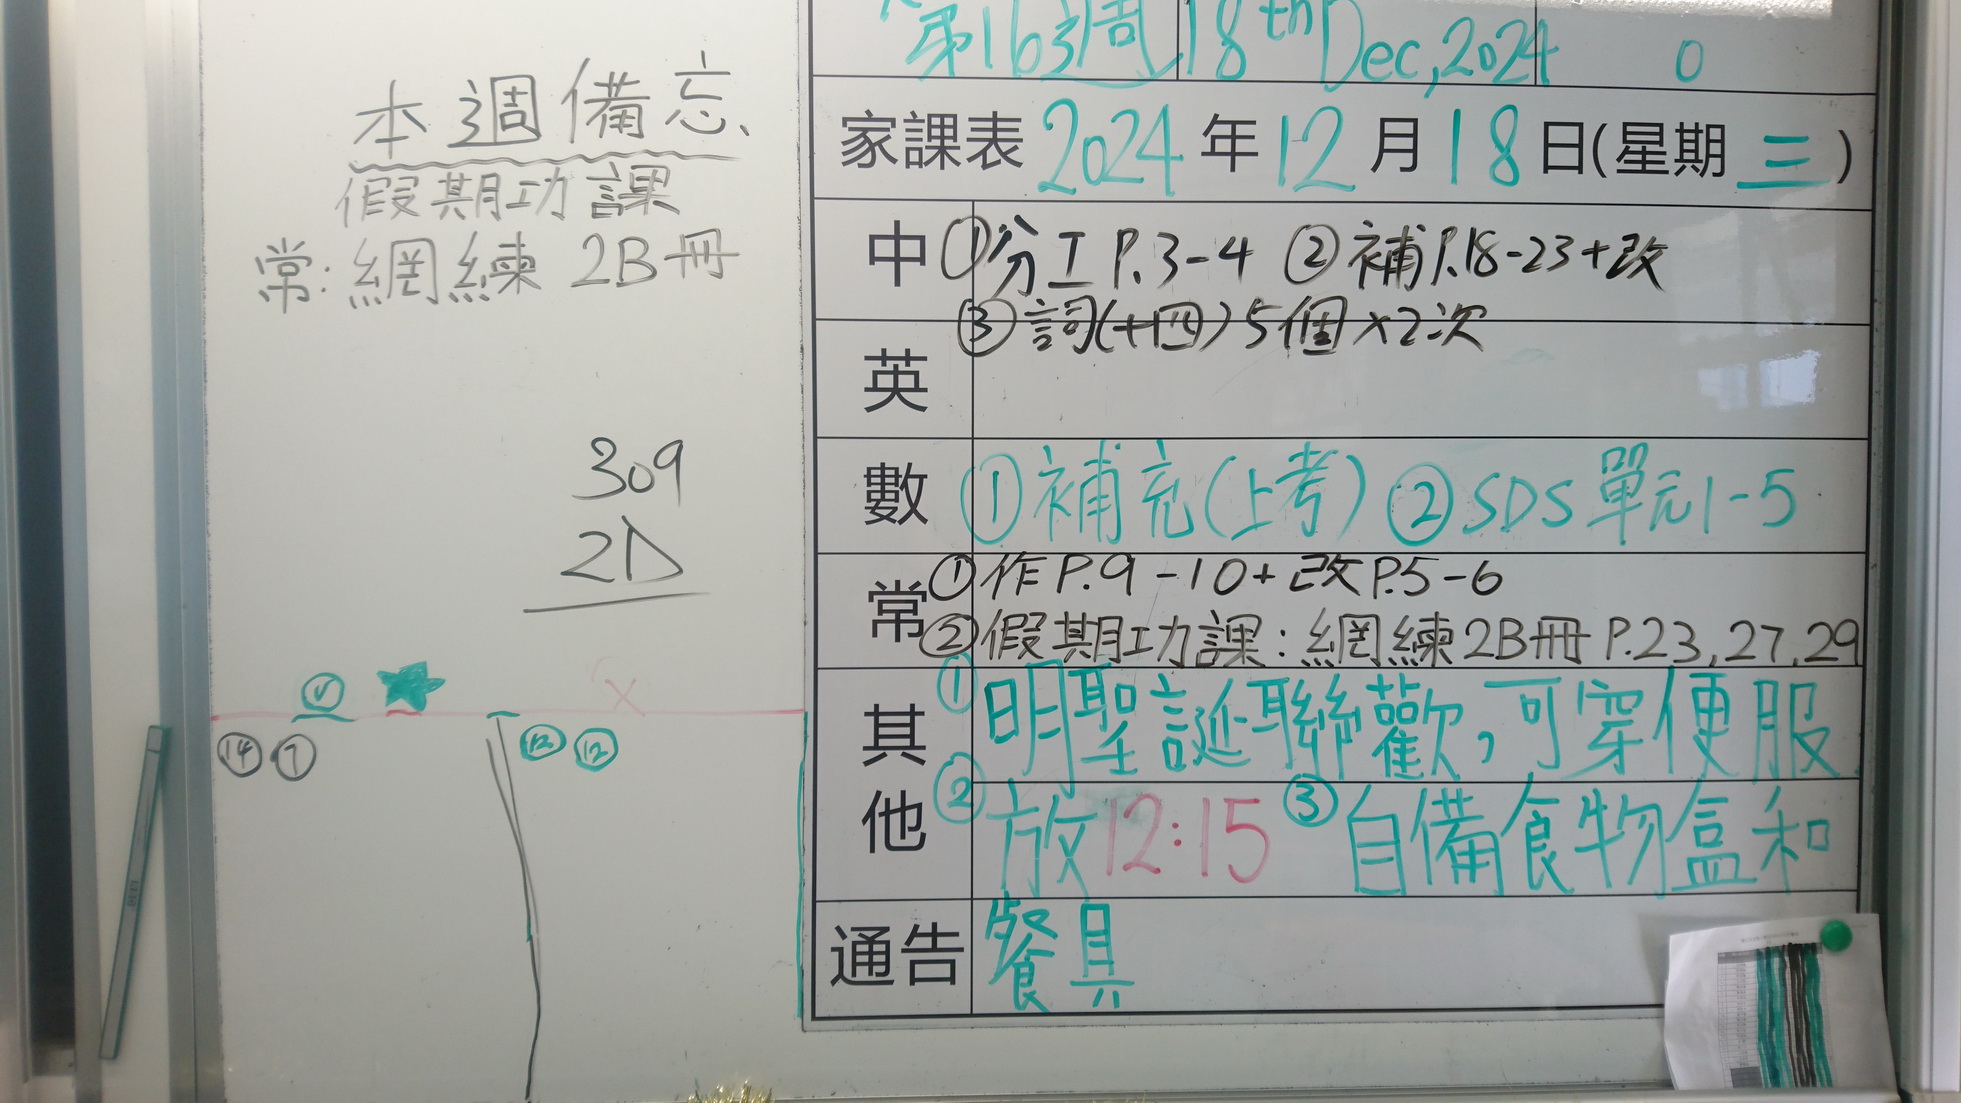 本週備忘
假期功課
常:網練 2B冊
309
2D
14 7
12 12
第16週 18th Dec, 2024 0
家課表 2024 年 12 月 18 日(星期 三)
中 ①分工 P.3-4 ②補P.18-23+改
③詞(十四)5個×2次
英
數 ①補充(上考) ②SDS 單元1-5
常 ①作 P.9-10+改P.5-6
②假期功課:網練2B冊 P.23,27,29
其他 ①明聖誕聯歡,可穿便服
②放12:15 ③自備食物盒和
通告 餐具